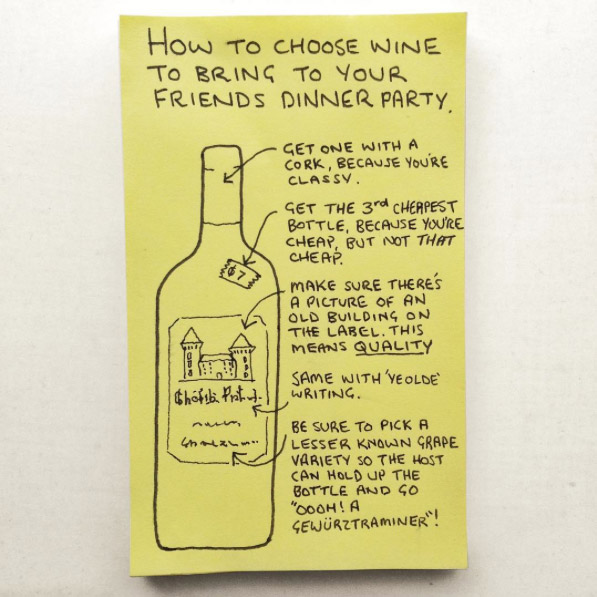 HOW TO CHOOSE WINE
TO BRING TO YOUR
FRIENDS DINNER PARTY.
GET ONE WITH A
CORK, BECAUSE YOU'RE
CLASSY.
GET THE 3rd CHEAPEST
BOTTLE, BECAUSE YOU'RE
CHEAP, BUT NOT THAT
CHEAP.
$7
MAKE SURE THERE'S
A PICTURE OF AN
OLD BUILDING ON
THE LABEL. THIS
MEANS QUALITY
SAME WITH 'YE OLDE'
WRITING.
BE SURE TO PICK A
LESSER KNOWN GRAPE
VARIETY SO THE HOST
CAN HOLD UP THE
BOTTLE AND GO
"OOOH! A
GEWÜRZTRAMINER"!